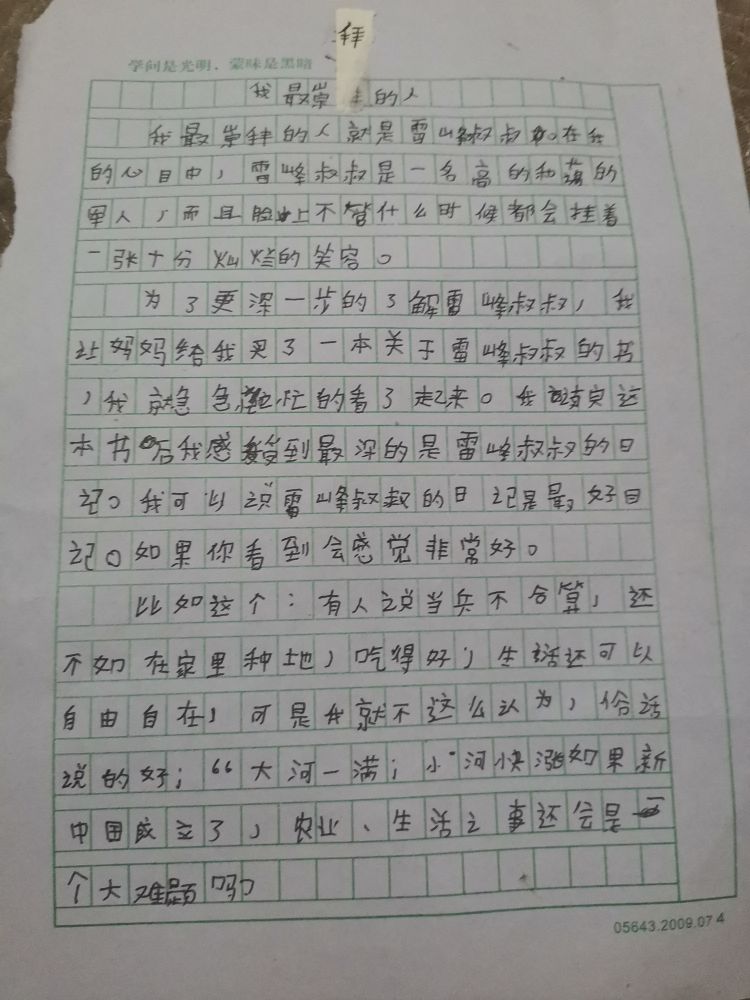 拜
学问是光明、蒙昧是黑暗
我最崇拜的人
我最崇拜的人就是雷峰叔叔。在我
的心目中，雷峰叔叔是一名高的和蔼的
军人，而且脸上不管什么时候都会挂着
一张十分灿烂的笑容。
为了更深一步的了解雷峰叔叔，我
让妈妈给我买了一本关于雷峰叔叔的书
，我就急急忙的看了起来。我读完这
本书后我感受到最深的是雷峰叔叔的日
记。我可以说雷峰叔叔的日记是最好日
记。如果你看到会感觉非常好。
比如这个：有人说当兵不合算，还
不如在家里种地，吃得好，生活还可以
自由自在，可是我就不这么认为，俗话
说的好；“大河一满；小河快涨如果新
中国成立了，农业、生活之事还会是一
个大难题吗
05643.2009.07 4